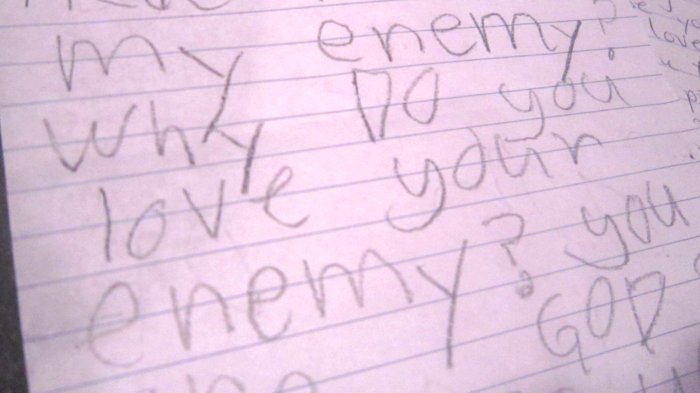 my enemy?
Why DO you
love your
enemy? you
GOD